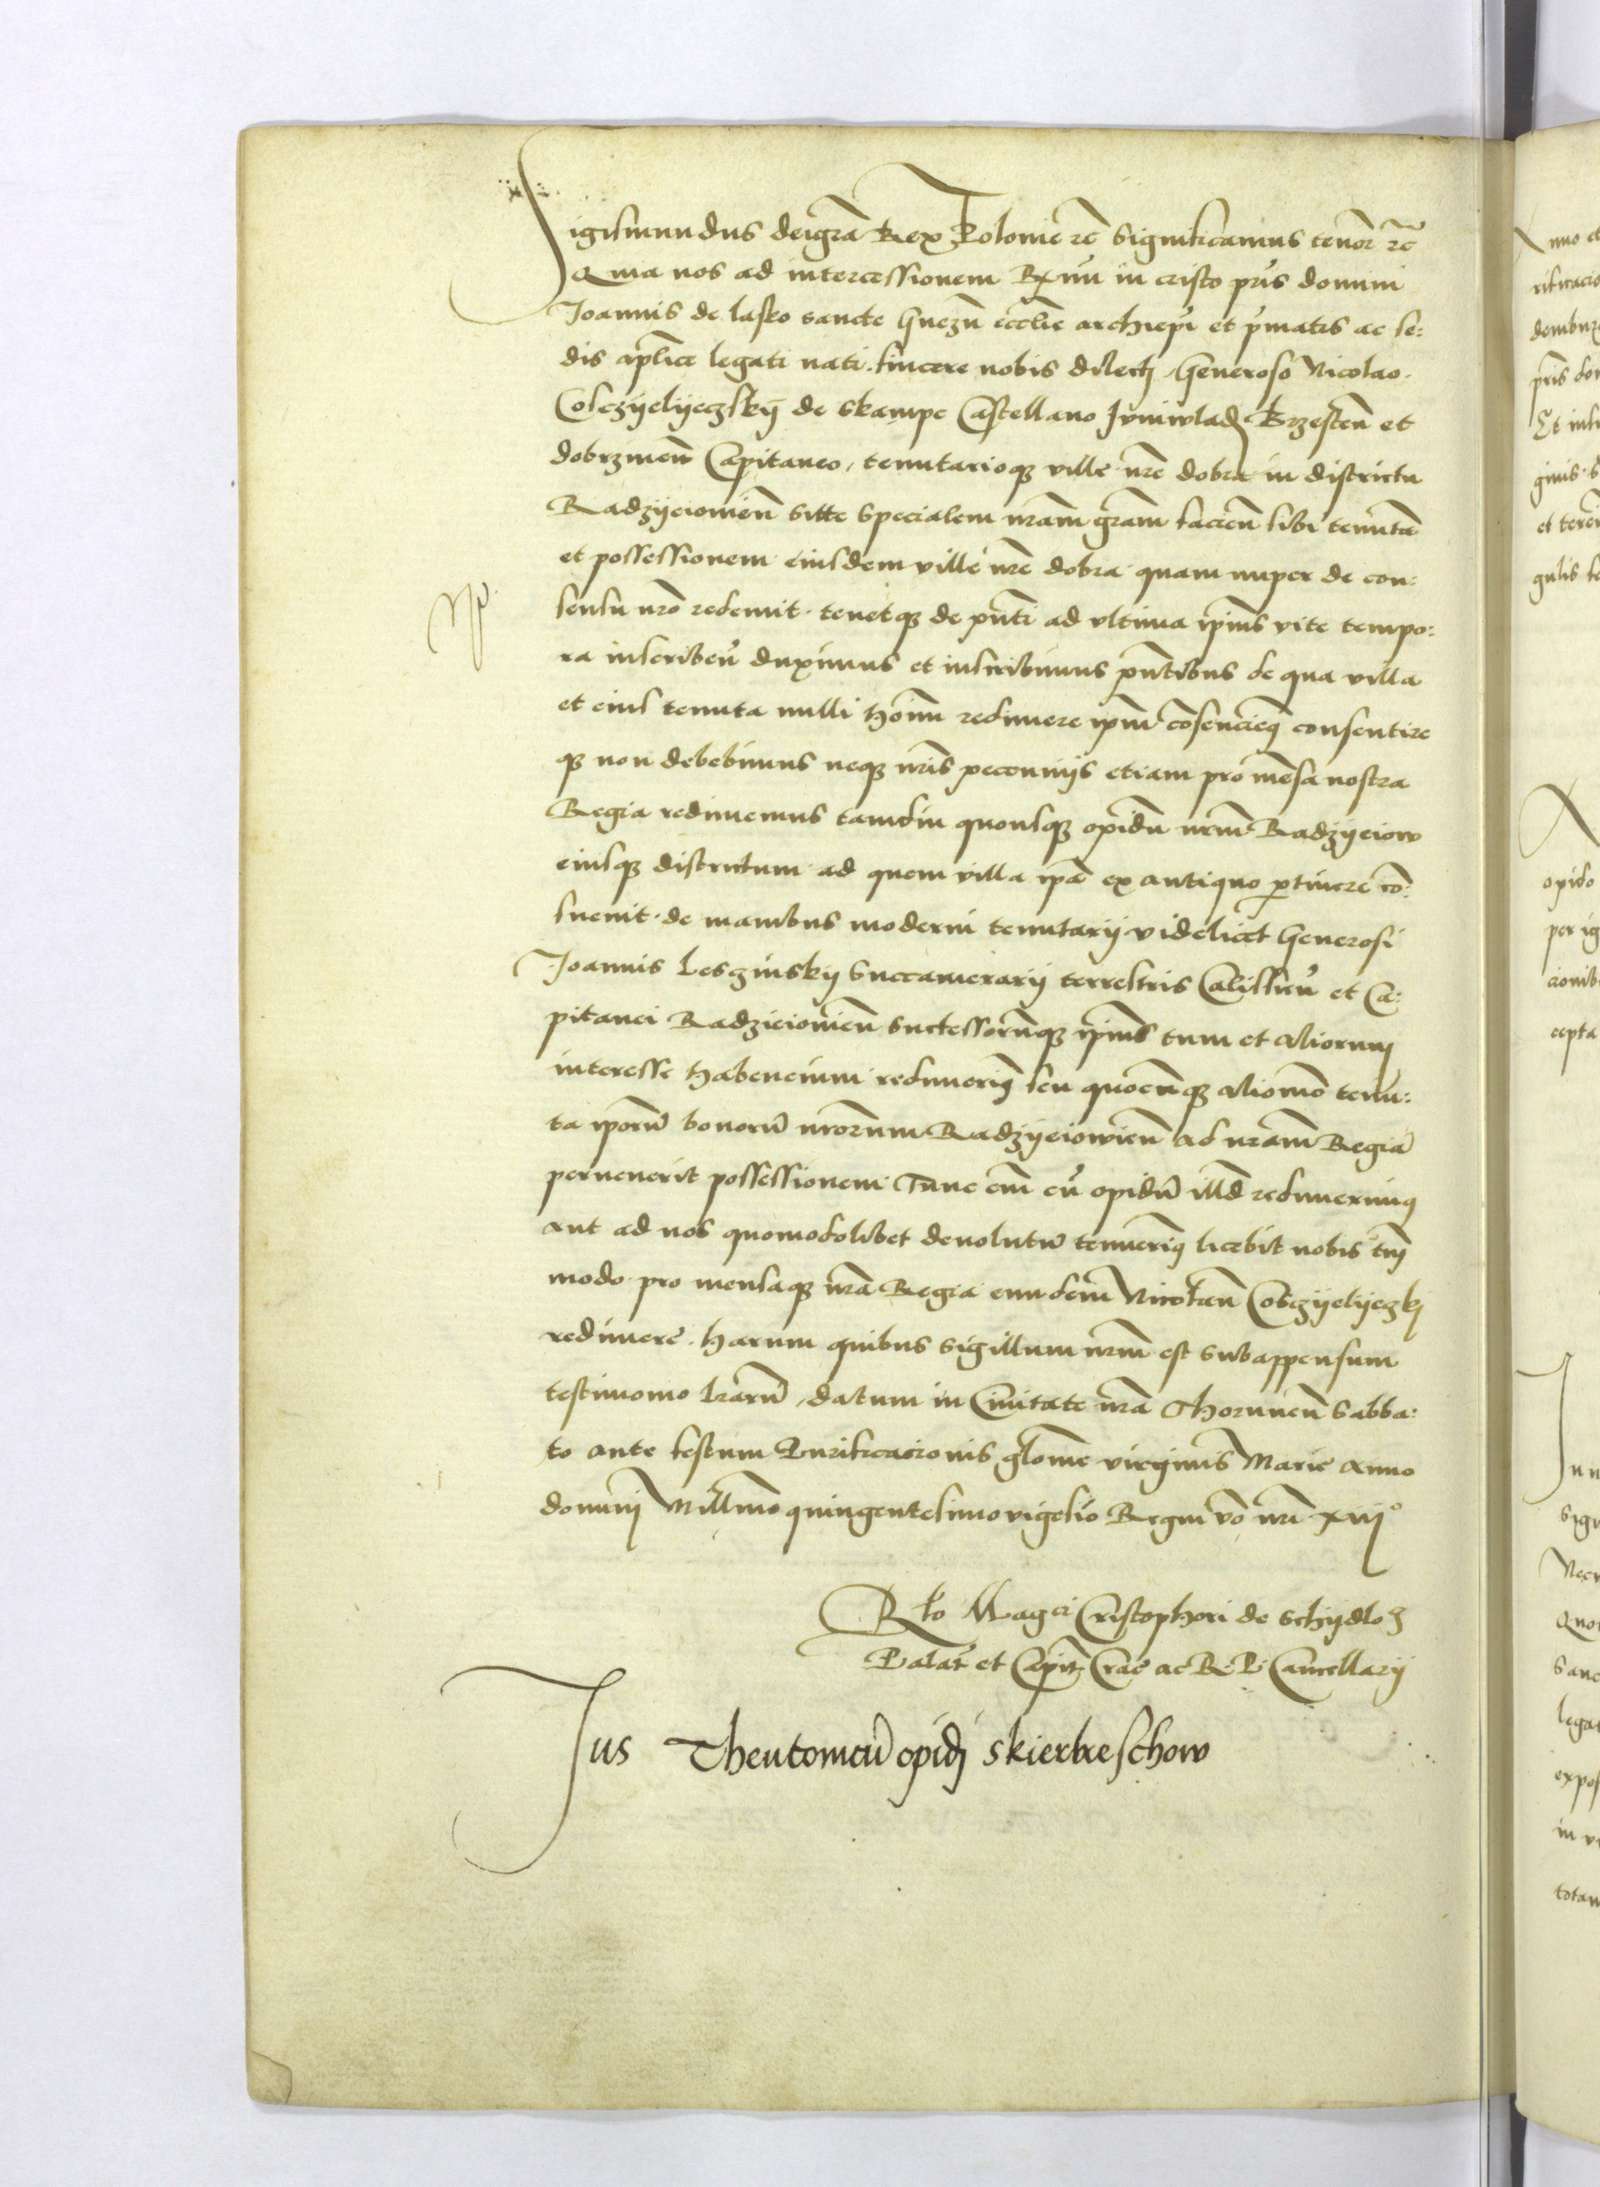 Sigismundus dei grã Rex Polonie rc̃ Significamus tenor rc̃
Quia nos ad intercessionem Rxm̃i in cristo pr̃is domini
Joannis de lasko sancte Gnezñ eccl̃ie archiep̃i et p̃matis ac se:
dis apl̃ice legati nati. sincere nobis dilecti Generoso Nicolao.
Coszyelyeczsky de skampe Castellano Junivladi Brzesteñ et
dobrzineñ Capitaneo, tenutarioq; ville nr̃e dobra in districtu
Radzyeiovieñ site Specialem nr̃am gr̃am facieñ sibi tenutã
et possessionem eiusdem ville nr̃e dobra quam nuper de con:
Np.
sensu nrõ redemit. tenetq; de pñti ad ultima ip̃ius vite tempo:
ra inscribeñ duximus et inscribimus pñtibus de qua villa
et eius tenuta nulli hoĩm redimere ip̃m consentire
q; non debebimus neq; nr̃is peccuniis etiam pro mẽsa nostra
Regia redimemus tamdiu quousq; opidũ nr̃m Radzyeiow
eiusq; districtum ad quem villa ip̃a ex antiquo p̱tinere cõ:
suevit. de manibus moderni tenutarii videlicet Generosi
Joannis Leszinsky Succamerarii terrestris Calissieñ et Ca:
pitanei Radzieiovieñ Successorũq; ip̃ius tum et aliorum
interesse habencium redimerimus seu quocũq; aliomõ tenu:
ta ip̃orũ bonorũ nr̃orum Radzyeiowieñ ad nr̃am Regiã
pervenerit possessionem Tunc em̃ cũ opidũ illd̃ redimerimus
aut ad nos quomodolibet devolutũ tenuerimus licebit nobis tm̃
modo pro mensaq; nr̃a Regia eundem Nicolaũ Coszyelyeczki
redimere. Harum quibus Sigillum nr̃m est Subappensum
testimonio lr̃arũ, datum in Civitate nr̃a Thoruneñ Sabba:
to ante festum Purificacionis gl̃ome virginis Marie Anno
domini Mill̃mo quingentesimo vigesiõ Regni võ nr̃i xiiii°
Rl̃o Magci Cristophori de Schydlo
Palat̃ et Capit̃ Crac̃ ac R. P. Cancellarii
Jus Theutonicũ opidi Skierbeschow